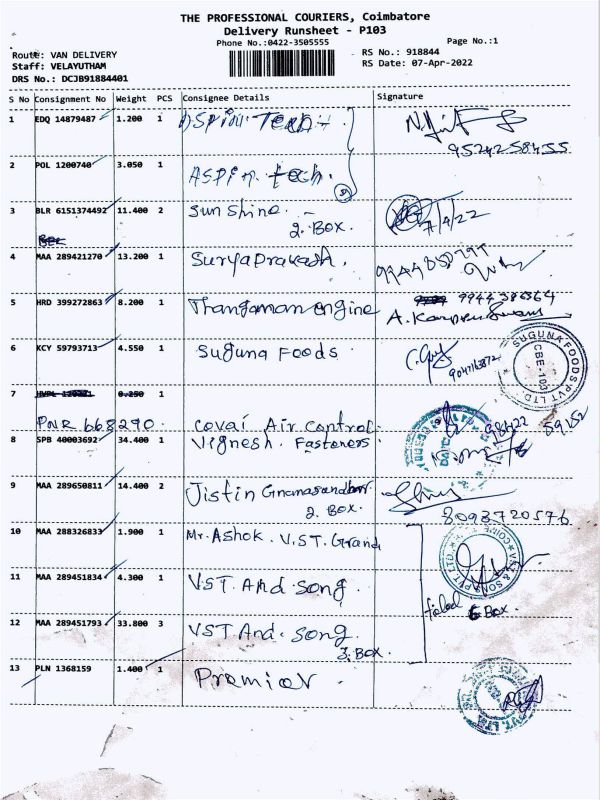 THE PROFESSIONAL COURIERS, Coimbatore
Delivery Runsheet - P103
Phone No.:0422-3505555
Page No.:1
Route: VAN DELIVERY
Staff: VELAYUTHAM
DRS No.: DCJB91884401
RS No.: 918844
RS Date: 07-Apr-2022
S No Consignment No Weight PCS Consignee Details Signature
1 EDQ 14879487 1.200 1 ASPIN TECH
9524258455
2 POL 1200740 3.050 1 ASPIN tech.
3 BLR 6151374492 11.400 2 Sunshine.
2. Box. 7/4/22
4 MAA 289421270 13.200 1 Suryaprakash.
5 HRD 399272863 8.200 1 Thangaman engine 9944386364
6 KCY 59793713 4.550 1 Suguna Foods
SUGUNA FOODS PVT LTD. CBE-103
7 0.250 1
PNR 668290. Covai Air Control.
8 SPB 40003692 34.400 1 Vignesh. Fasteners
9 MAA 289650811 14.400 2 Jistin
2. Box. 8093720576
10 MAA 288326833 1.900 1 Mr. Ashok. V.ST. Grand
11 MAA 289451834 4.300 1 V.ST. And song.
6 Box.
12 MAA 289451793 33.800 3 VST. And. song.
3. Box.
13 PLN 1368159 1.400 1 Premier.